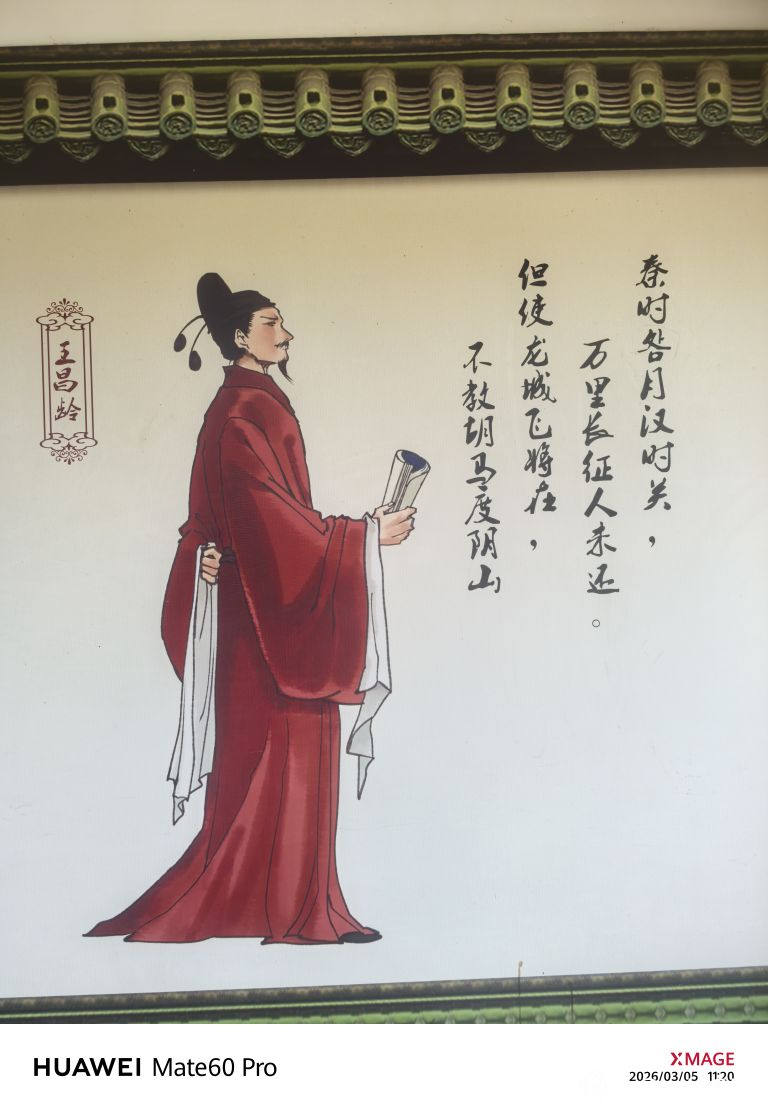 秦时月汉时关，
万里长征人未还。
但使龙城飞将在，
不教胡马度阴山
王昌龄
HUAWEI Mate60 Pro
XMAGE
2026/03/05 11:20